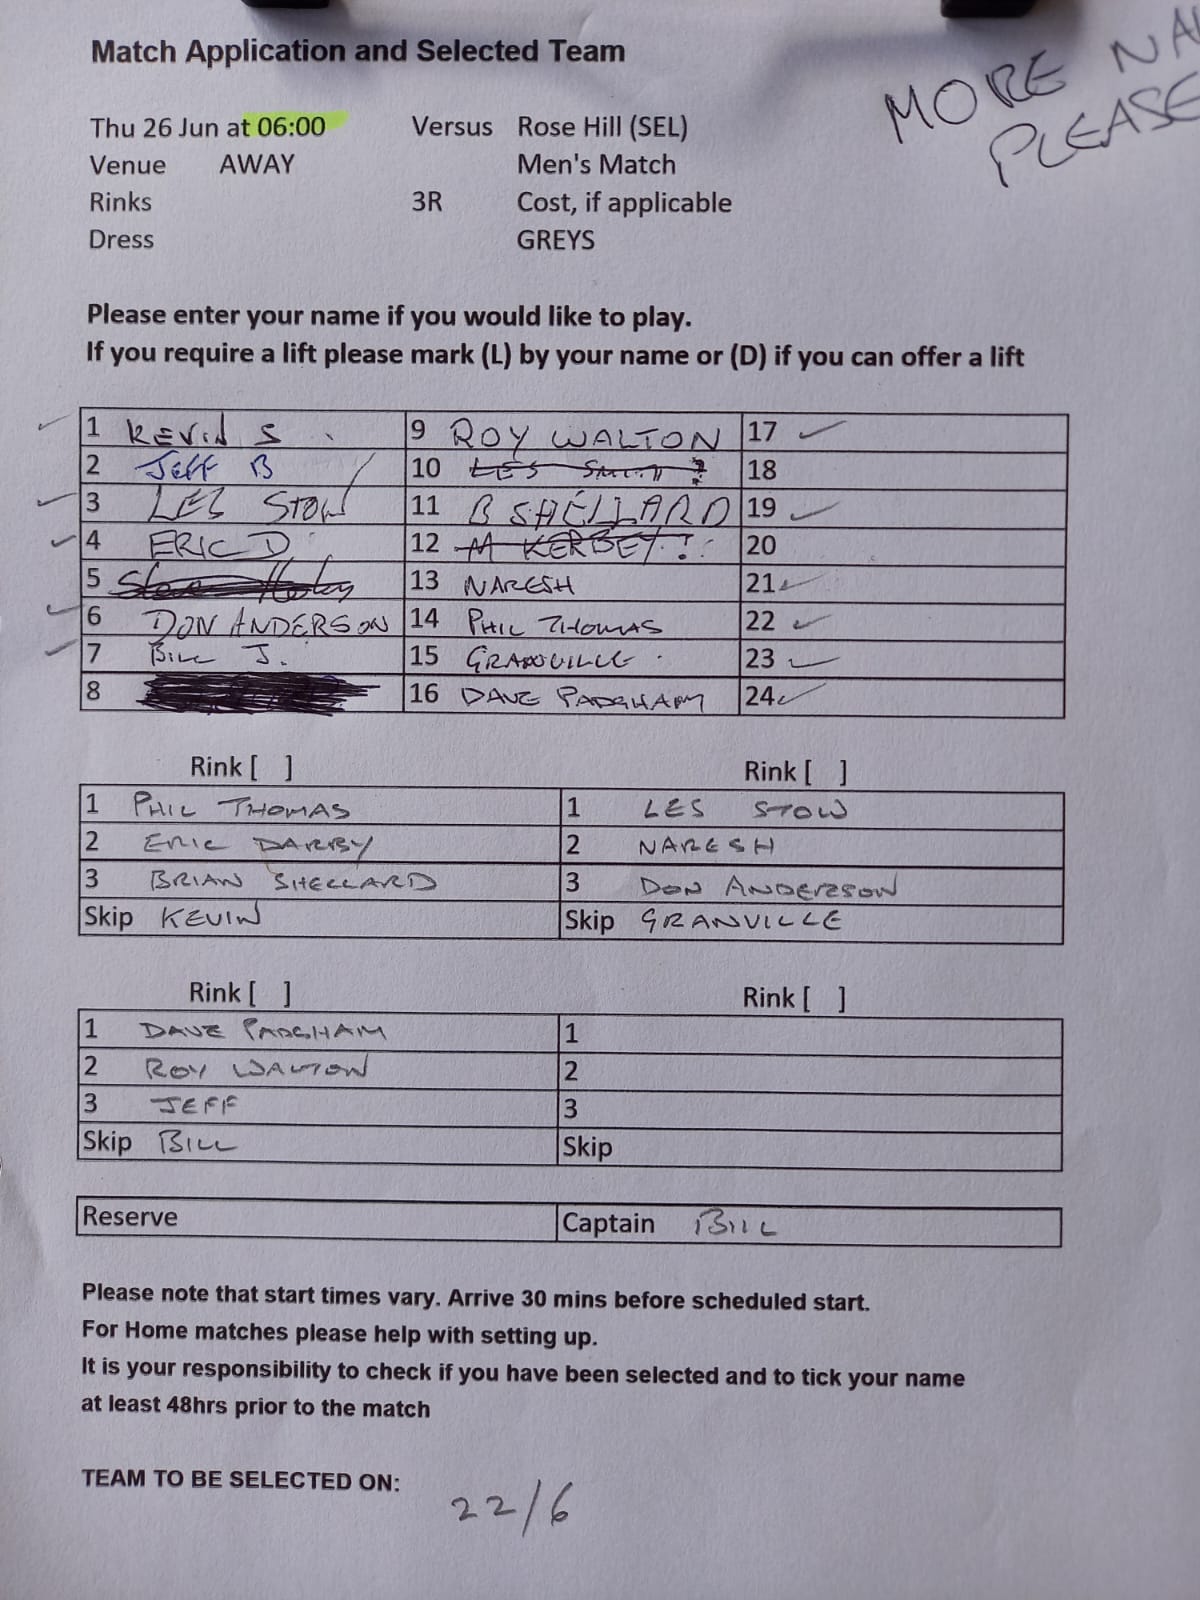 MORE NA
PLEASE
Match Application and Selected Team
Thu 26 Jun at 06:00 Versus Rose Hill (SEL)
Venue AWAY Men's Match
Rinks 3R Cost, if applicable
Dress GREYS
Please enter your name if you would like to play.
If you require a lift please mark (L) by your name or (D) if you can offer a lift
1 KEVIN S 9 ROY WALTON 17
2 JEFF B 10 LES SMITH ? 18
3 LES STOW 11 B SHELLARD 19
4 ERIC D 12 M KERBEY ! 20
5 Steve 13 NARESH 21
6 DON ANDERSON 14 PHIL THOMAS 22
7 BILL J. 15 GRANVILLE 23
8 16 DAVE PADGHAM 24
Rink [ ] Rink [ ]
1 PHIL THOMAS 1 LES STOW
2 ERIC DARBY 2 NARESH
3 BRIAN SHELLARD 3 DON ANDERSON
Skip KEVIN Skip GRANVILLE
Rink [ ] Rink [ ]
1 DAVE PADGHAM 1
2 ROY WALTON 2
3 JEFF 3
Skip BILL Skip
Reserve Captain BILL
Please note that start times vary. Arrive 30 mins before scheduled start.
For Home matches please help with setting up.
It is your responsibility to check if you have been selected and to tick your name
at least 48hrs prior to the match
TEAM TO BE SELECTED ON: 22/6